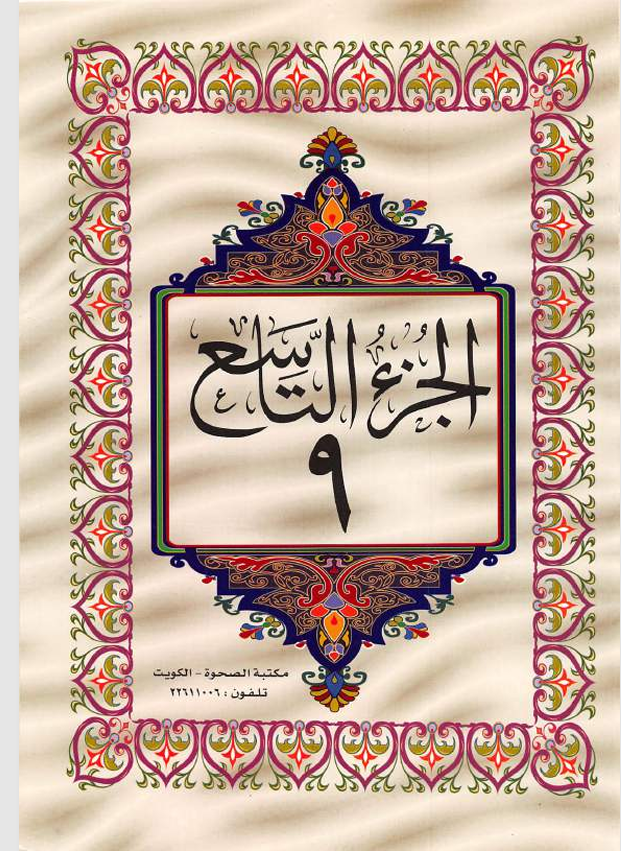 الجُزْءُ التَّاسِع
٩
مكتبة الصحوة - الكويت
تلفون : ٢٢٦١١٠٠٦